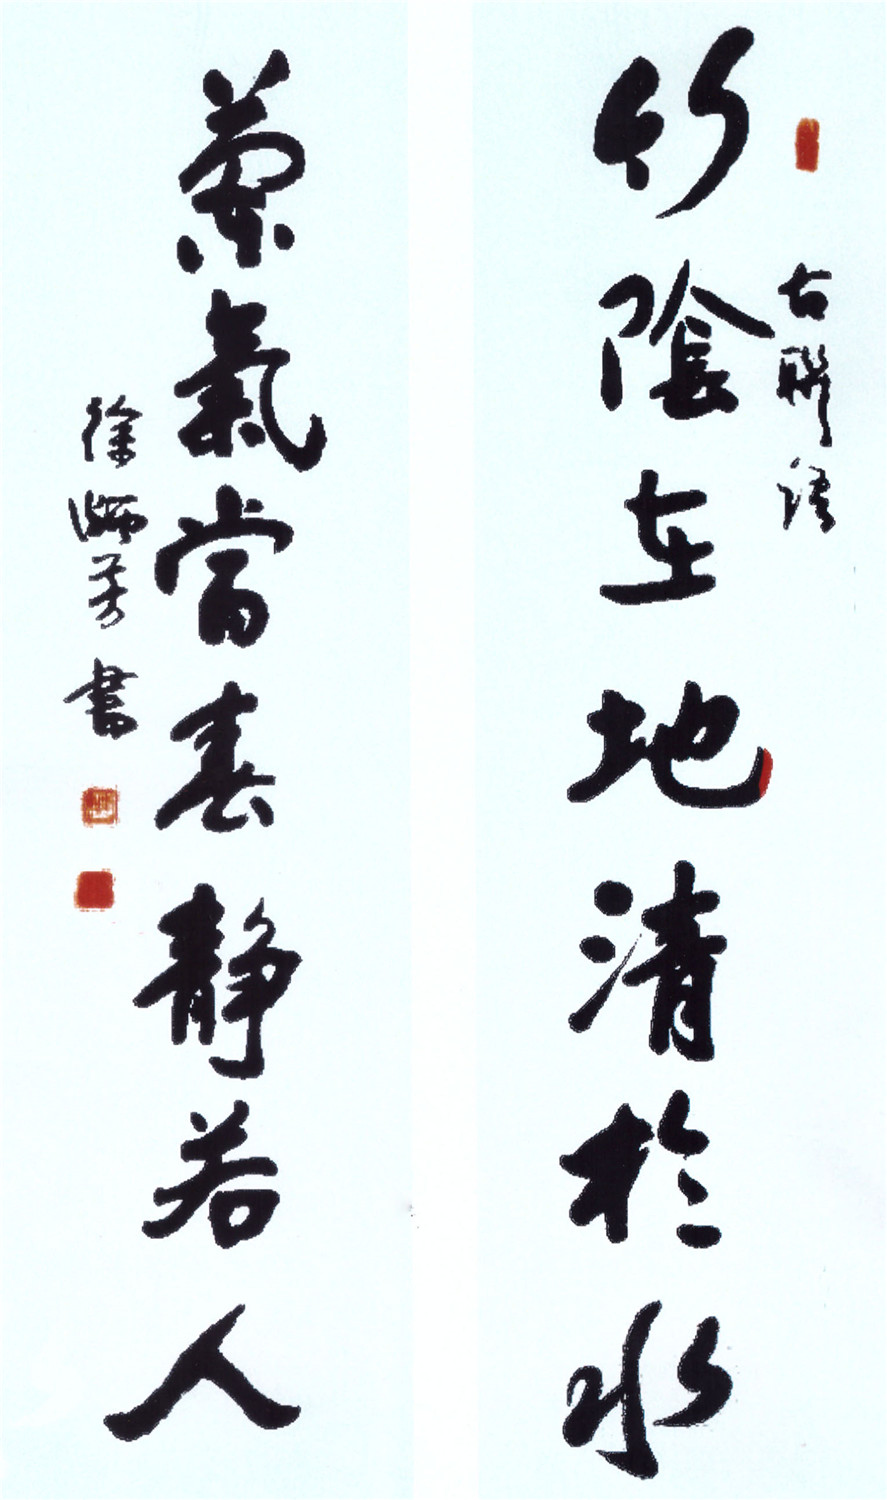 古聯語
竹陰在地清於水
蘭氣當春靜若人
徐師芳書